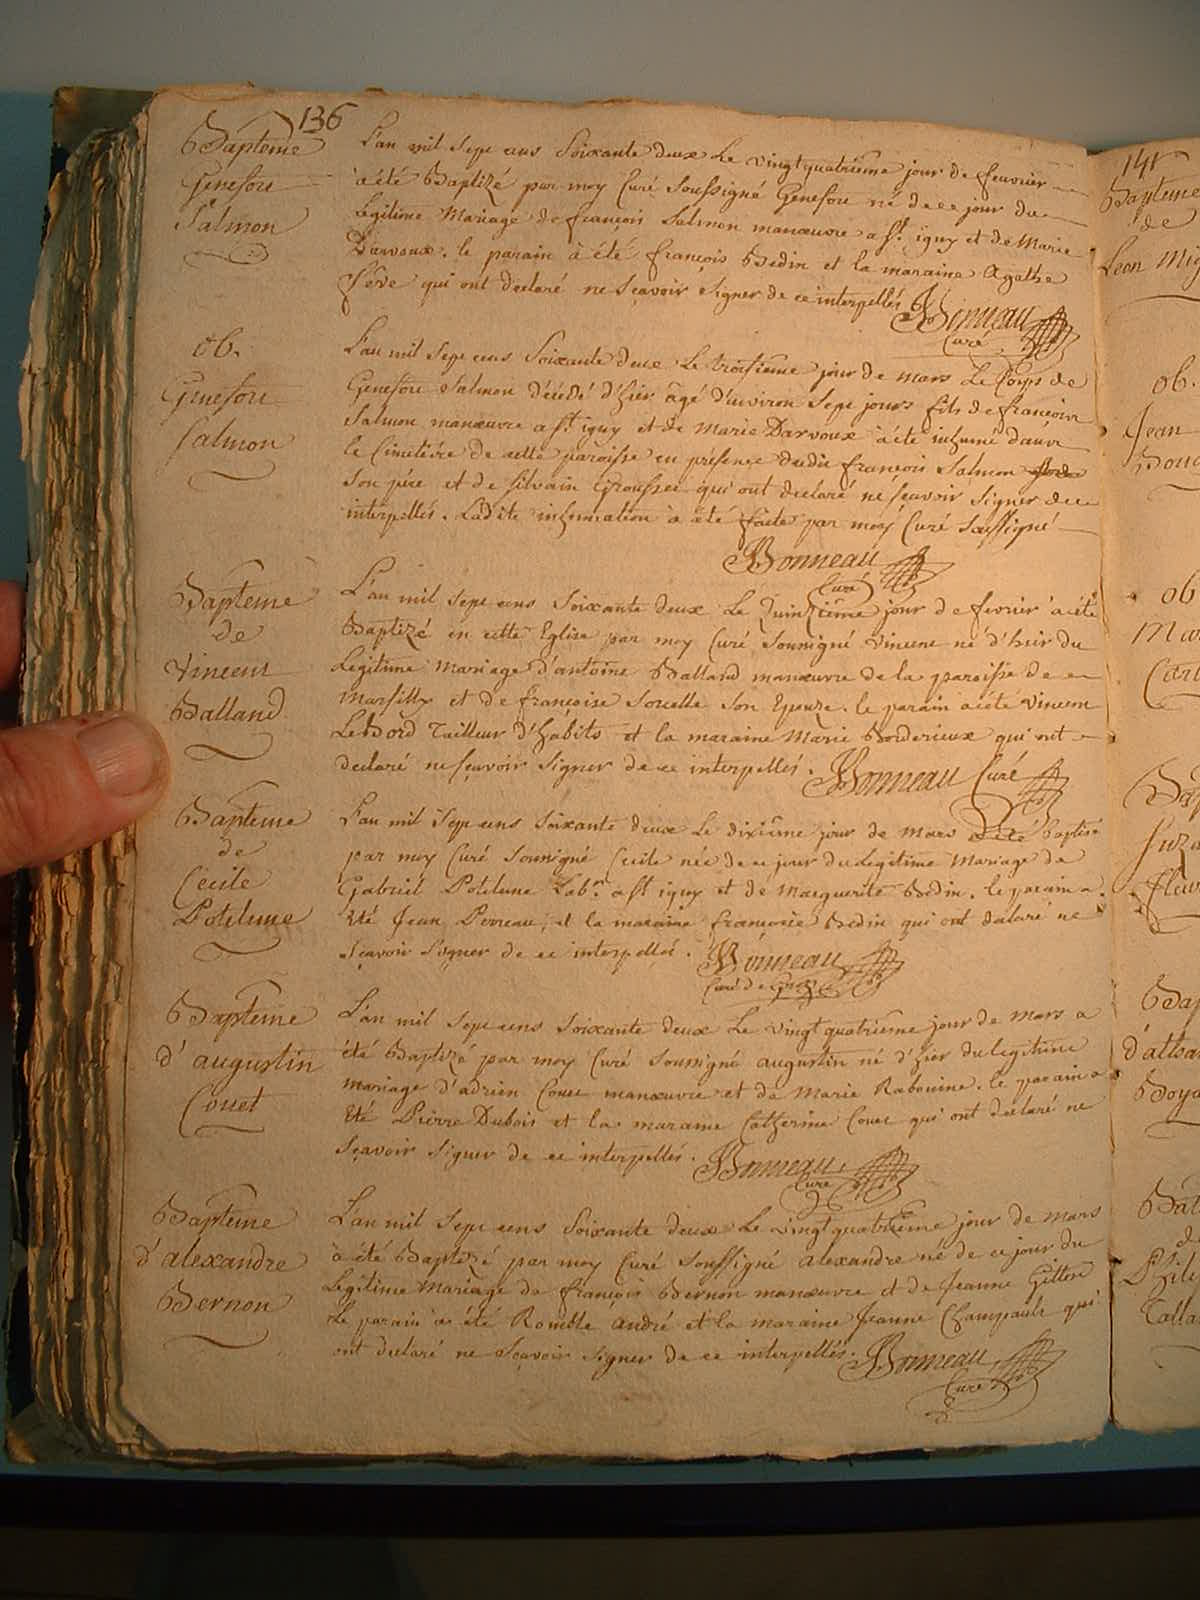 136
Baptême
Genefou
Salmon
L'an mil sept cens Soixante deux Le vingtquatrieme jour de fevrier
a été Baptizé par moy Curé Soussigné Genefou né de ce jour du
Legitime Mariage de françois Salmon manœuvre a st. igny et de Marie
Darvoux. le parain à été françois Bedin et la maraine Agathe
qui ont declaré ne Sçavoir signer de ce interpellés. Bonneau
Curé
ob.
Genefou
Salmon
L'an mil Sept cens Soixante deux Le troisieme jour de mars Le Corps de
Genefou Salmon décédé d'hier âgé d'environ Sept jours fils de francois
Salmon manœuvre a st. iguy et de Marie Darvoux à été inhumé dans
le Cimetiére de cette paroisse en présence dudit françois Salmon
Son père et de Silvain Grousset qui ont declaré ne sçavoir Signer de ce
interpellés. Ladite inhumation à été faite par moy Curé Soussigné
Bonneau
Curé
Baptême
de
Vincent
Balland
L'an mil Sept cens Soixante deux Le Quinzieme jour de fevrier à été
Baptizé en cette Eglise par moy Curé Soussigné Vincent né d'hier du
Legitime Mariage d'antoine Balland manœuvre de la paroisse de
Marsilly et de françoise Sorcelle Son Epouze. le parain à été Vincent
LeBord Tailleur d'habits et la maraine Marie Borderieux qui ont
declaré ne sçavoir Signer de ce interpellés. Bonneau Curé
Baptême
de
Cecile
Potelune
L'an mil Sept cens Soixante deux Le dixiême jour de Mars à été baptisé
par moy Curé Soussigné Cecile née de ce jour du Legitime Mariage de
Gabriel Potelune Labr. a st iguy et de Marguerite Bedin. le parain a
été Jean Perreau, et la maraine françoise Bedin qui ont declaré ne
Sçavoir Signer de ce interpellés. Bonneau
Curé de
Baptême
d'augustin
Couet
L'an mil Sept cens Soixante deux Le vingtquatrieme jour de Mars a
été Baptizé par moy Curé Soussigné augustin né d'hier du legitime
mariage d'adrien Couet manœuvre et de Marie Rabouine. le parain a
Eté Pierre Dubois et la maraine Catherine Couet qui ont declaré ne
Sçavoir Signer de ce interpellés. Bonneau,
Curé
Baptême
d'alexandre
Bernon
L'an mil Sept cens Soixante deux Le vingtquatrieme jour de Mars
à été Baptizé par moy Curé Soussigné alexandre né de ce jour du
Legitime Mariage de françois Bernon manœuvre et de Jeanne Gitton
Le parain à été Romble André et la maraine Jeanne Champault qui
ont declaré ne Sçavoir Signer de ce interpellés. Bonneau,
Curé
141
Baptême
de
Leon
ob.
Jean
ob